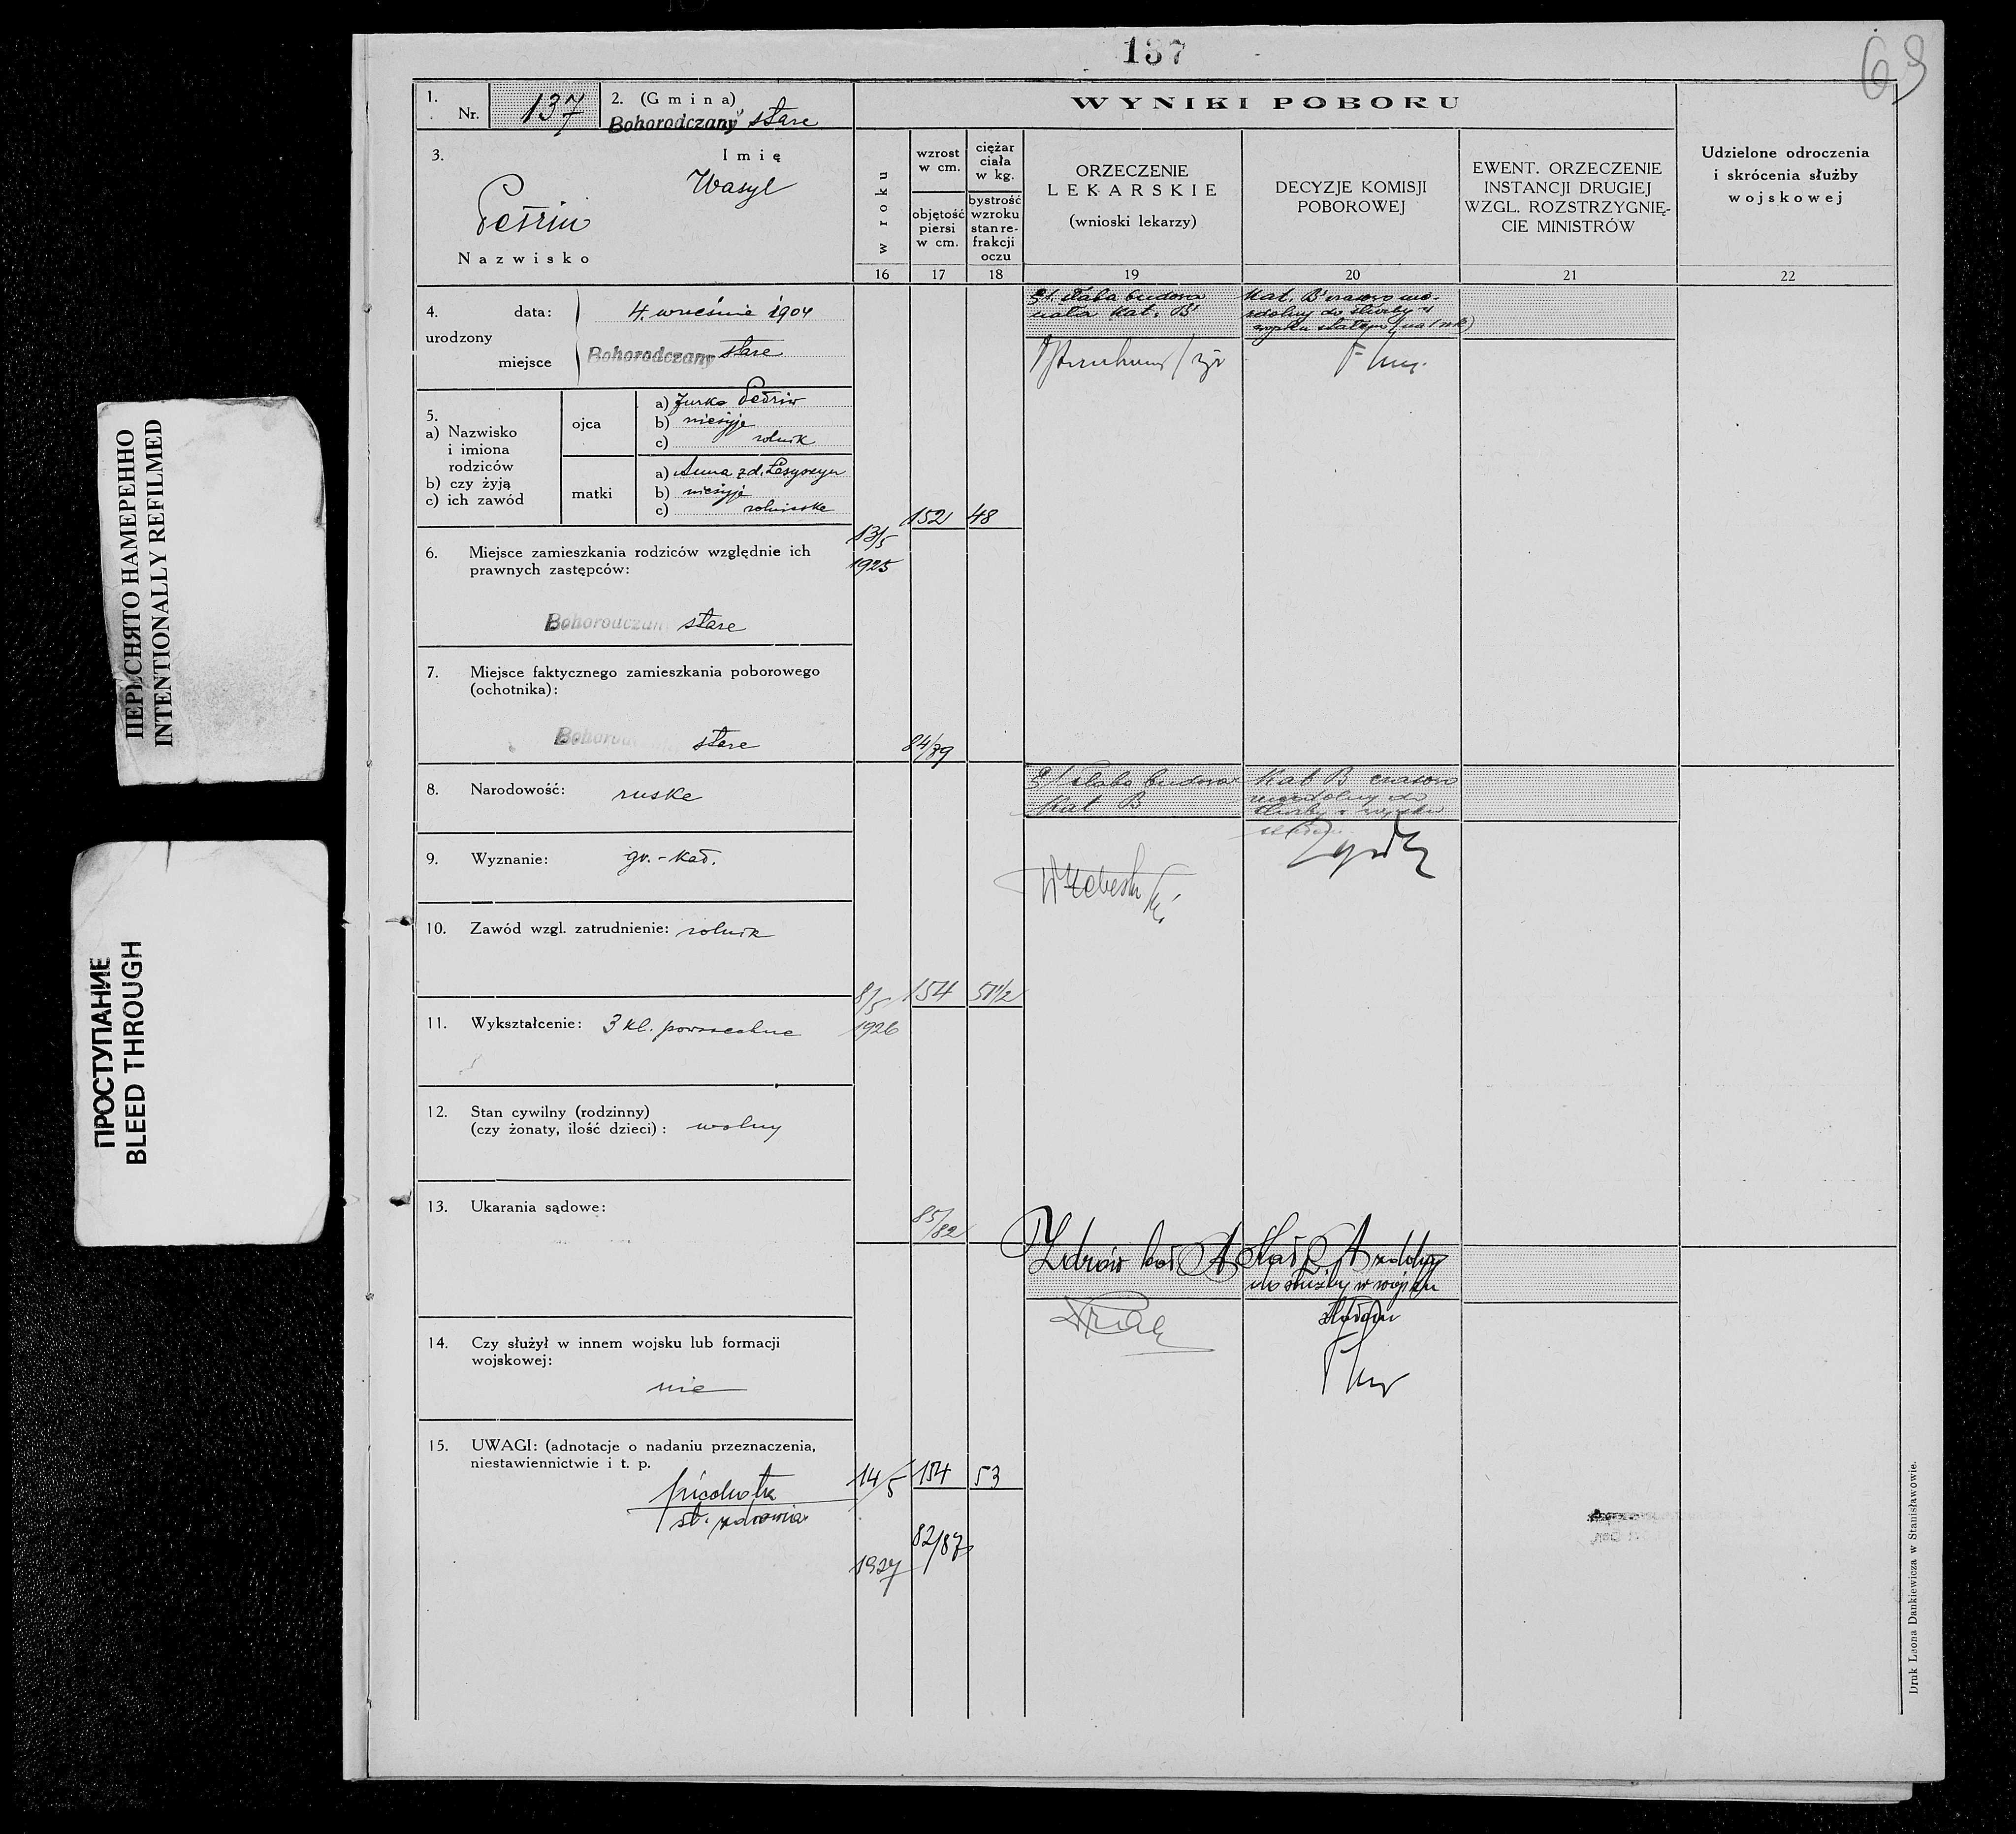 137
69
1.
Nr. 137
2. (Gmina)
Bohorodczany stare
WYNIKI POBORU
3.
Imię
Wasyl
Petriw
Nazwisko
w roku
wzrost
w cm.
objętość
piersi
w cm.
ciężar
ciała
w kg.
bystrość
wzroku
stan re-
frakcji
oczu
ORZECZENIE
LEKARSKIE
(wnioski lekarzy)
DECYZJE KOMISJI
POBOROWEJ
EWENT. ORZECZENIE
INSTANCJI DRUGIEJ
WZGL. ROZSTRZYGNIĘ-
CIE MINISTRÓW
Udzielone odroczenia
i skrócenia służby
wojskowej
16 17 18 19 20 21 22
4. data: 4. września 1904
urodzony
miejsce Bohorodczany stare
słaba budowa
kat. B
Kat. B czasowo nie-
zdolny do służby w
wojsku stałem
5.
a) Nazwisko
i imiona
rodziców
b) czy żyją
c) ich zawód
ojca
a) Jurko Petriw
b) nieżyje
c) rolnik
matki
a) Anna z d.
b) nieżyje
c) rolniczka
13/5
1925
152 48
84/89
6. Miejsce zamieszkania rodziców względnie ich
prawnych zastępców:
Bohorodczan stare
7. Miejsce faktycznego zamieszkania poborowego
(ochotnika):
stare
8. Narodowość: ruska
słaba budowa
Kat B
Kat B czasowo
niezdolny do
służby w wojsku
9. Wyznanie: gr.-kat.
10. Zawód wzgl. zatrudnienie: rolnik
8/5
1926
154 51 1/2
85/82
11. Wykształcenie: 3 kl. powszechne
12. Stan cywilny (rodzinny)
(czy żonaty, ilość dzieci): wolny
13. Ukarania sądowe:
Zdrów kat A
Kat A zdolny
do służby w wojsku
stałem
14. Czy służył w innem wojsku lub formacji
wojskowej:
nie
15. UWAGI: (adnotacje o nadaniu przeznaczenia,
niestawiennictwie i t. p.
piechota
st. zdrowia
14/5
1927
154 53
82/87
Druk Leona Dankiewicza w Stanisławowie.
ПЕРЕСНЯТО НАМЕРЕННО
INTENTIONALLY REFILMED
ПРОСТУПАНИЕ
BLEED THROUGH